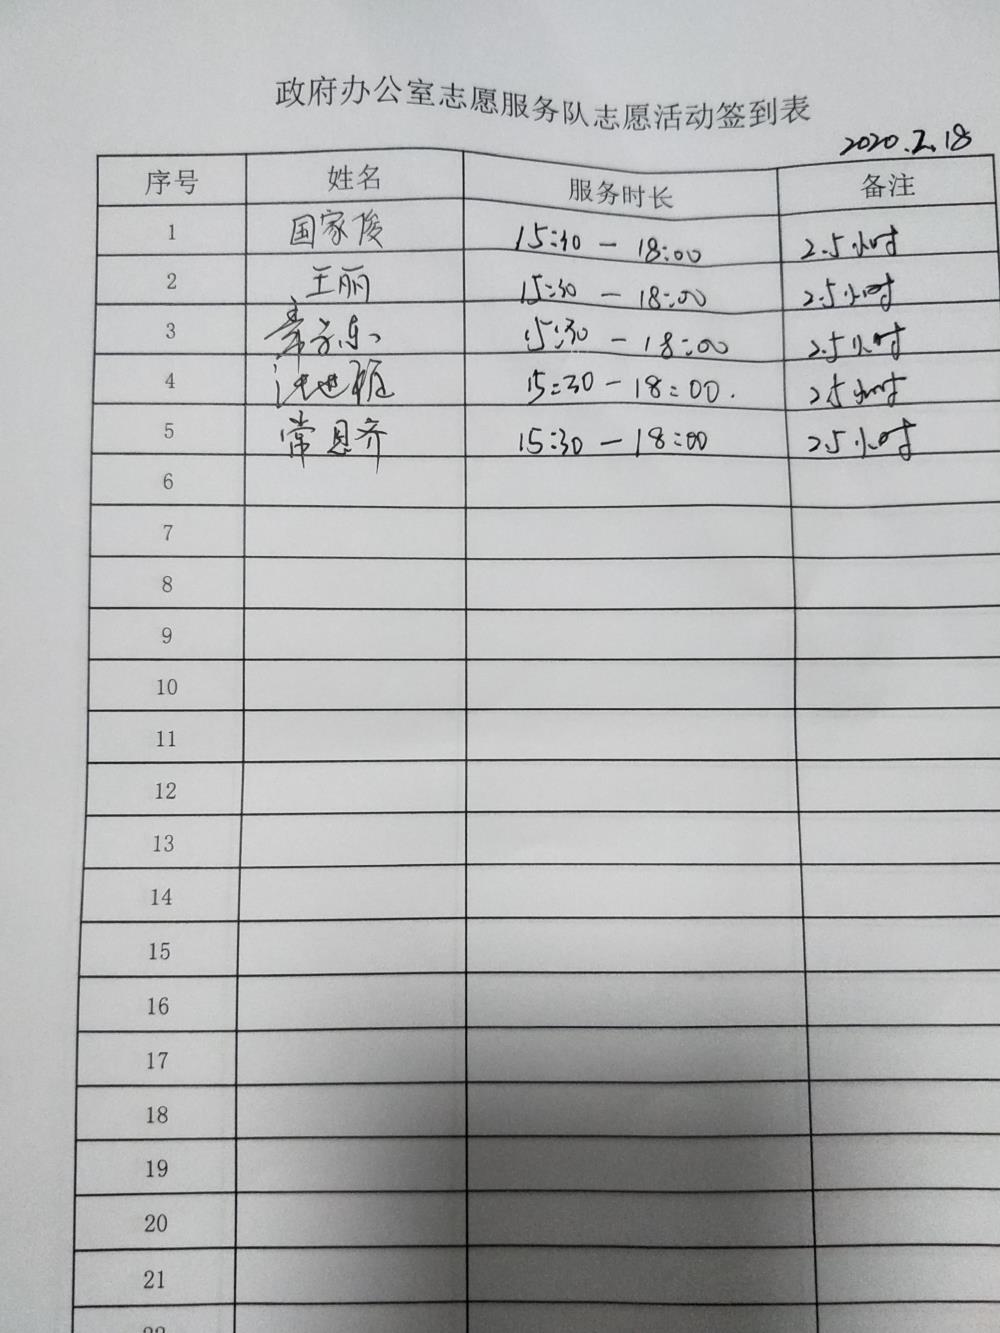 政府办公室志愿服务队志愿活动签到表
2020.2.18
序号 姓名 服务时长 备注
1 国家俊 15:30 — 18:00 2.5小时
2 王丽 15:30 — 18:00 2.5小时
3 15:30 — 18:00 2.5小时
4 15:30 — 18:00. 2.5小时
5 常恩齐 15:30 — 18:00 2.5小时
6
7
8
9
10
11
12
13
14
15
16
17
18
19
20
21
22